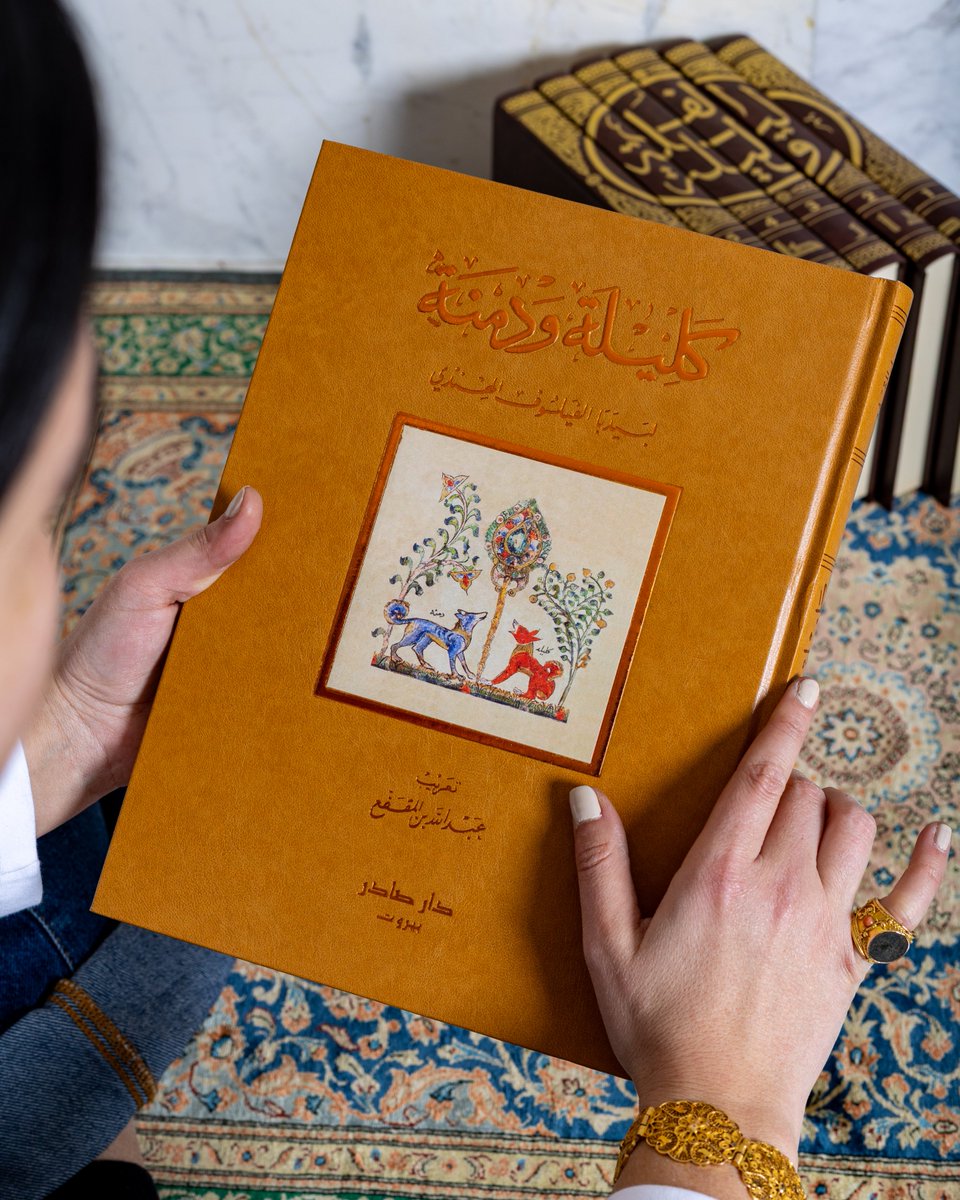 كَلِيلَة وَدِمْنَة
لبَيْدَبَا الفَيْلَسُوف الهِنْدي
دمنه
كليله
تَعْريْب
عَبْد اللّه بن المُقَفّع
دار صادر
بيروت